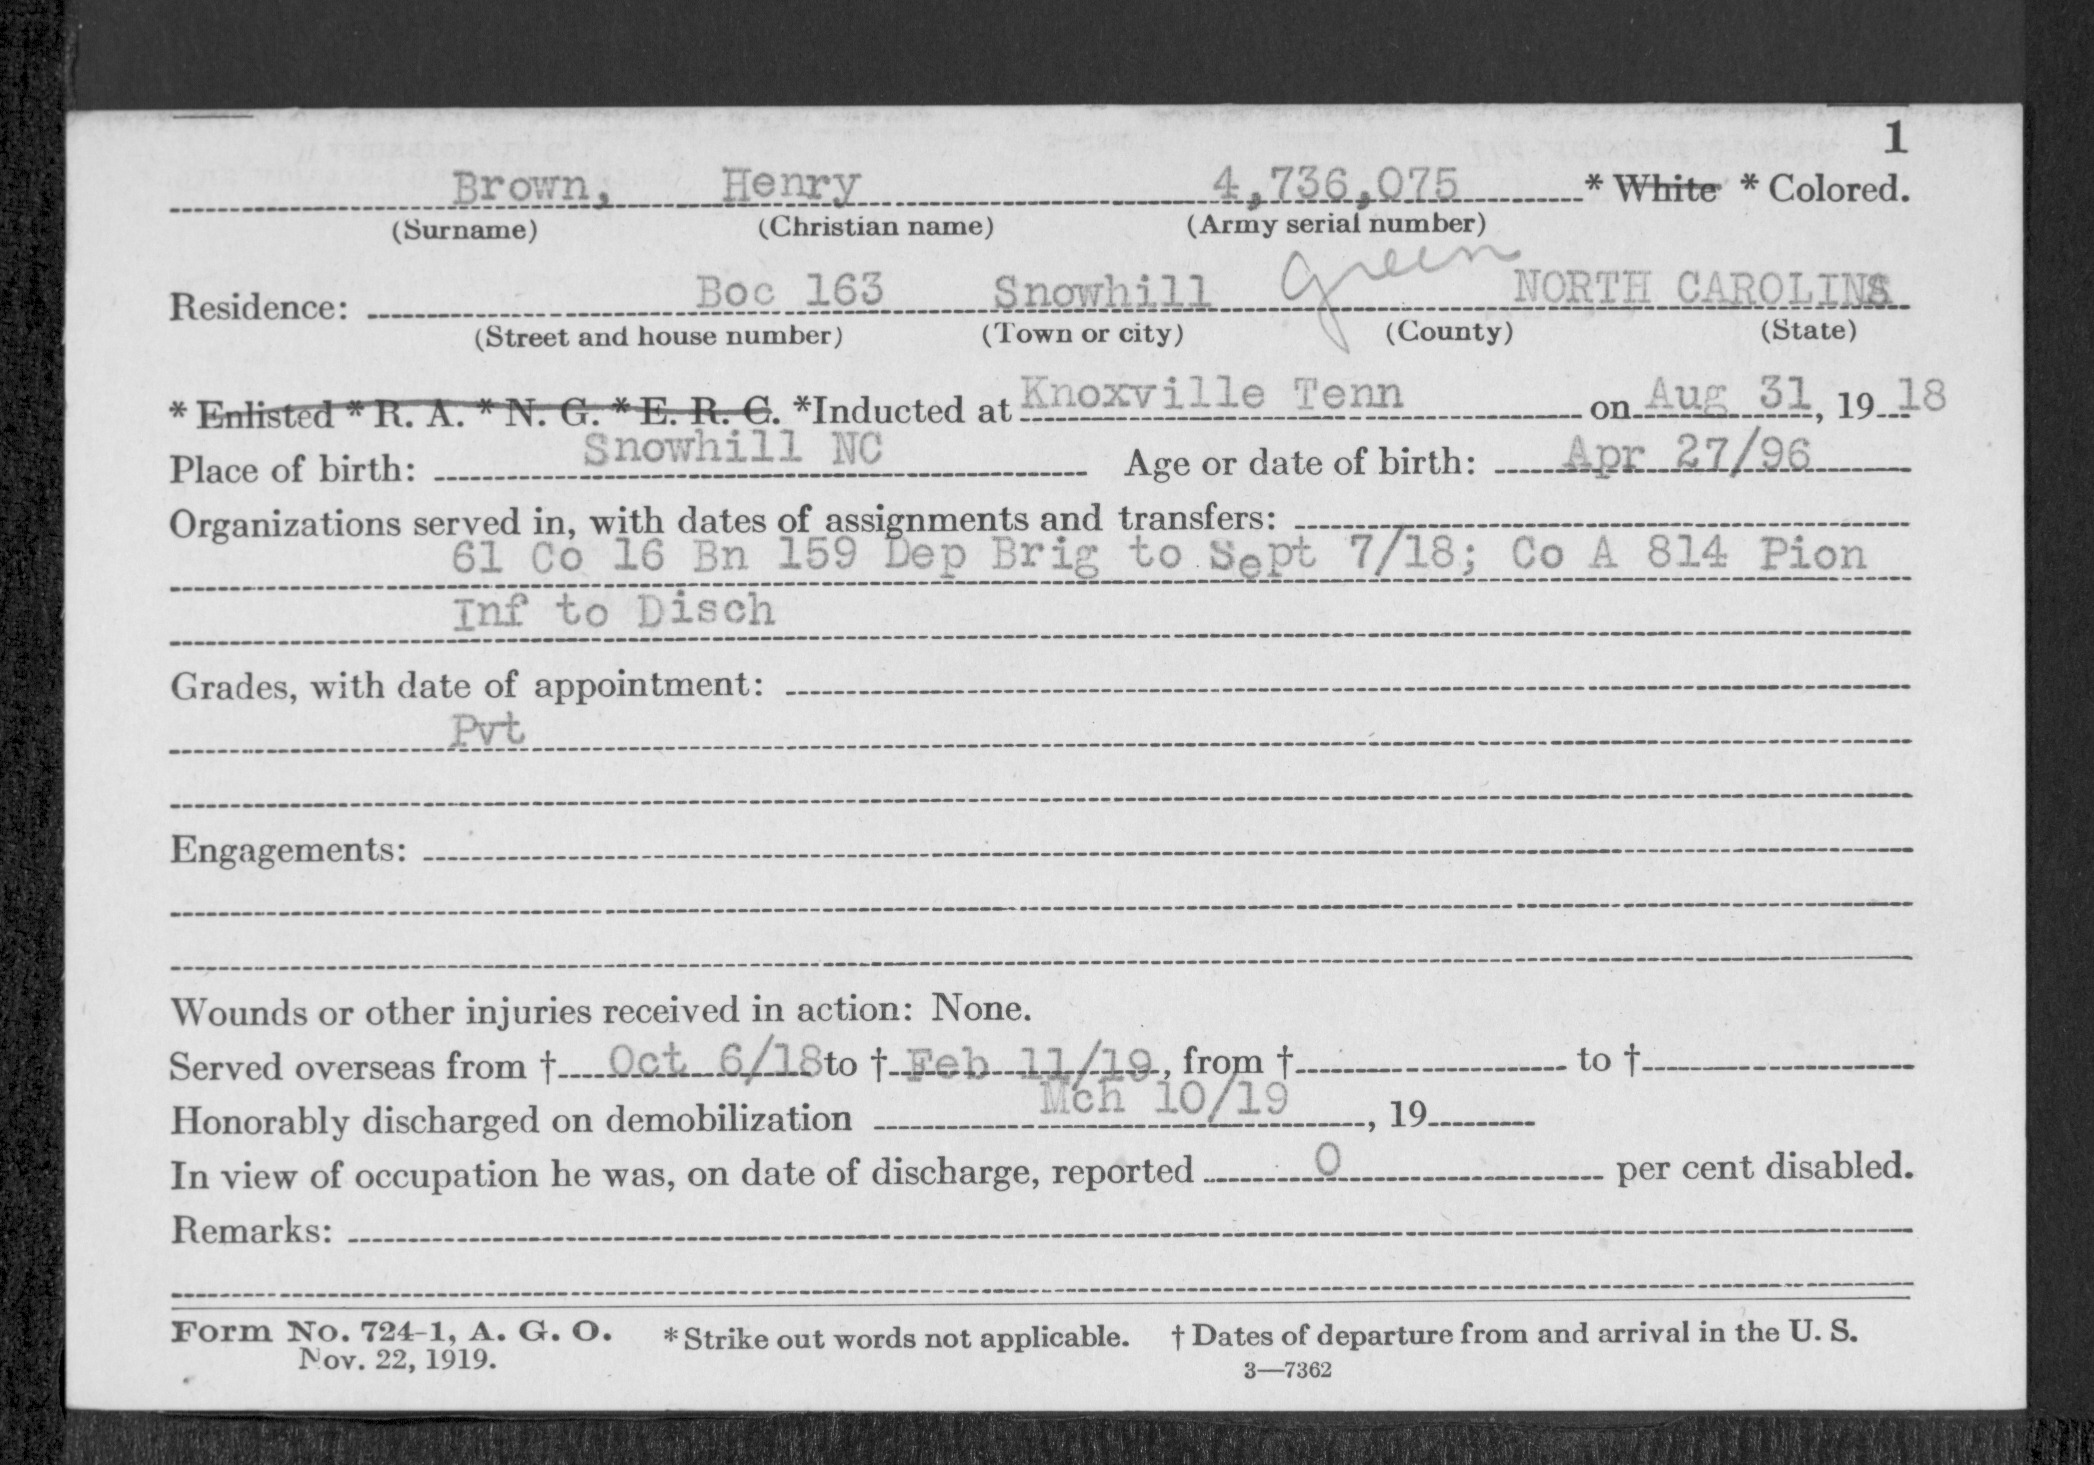 1
Brown, Henry 4,736,075 * White * Colored.
(Surname) (Christian name) (Army serial number)
Residence: Boc 163 Snowhill Green NORTH CAROLINA
(Street and house number) (Town or city) (County) (State)
* Enlisted * R. A. * N. G. * E. R. C. *Inducted at Knoxville Tenn on Aug 31, 19 18
Place of birth: Snowhill NC Age or date of birth: Apr 27/96
Organizations served in, with dates of assignments and transfers:
61 Co 16 Bn 159 Dep Brig to Sept 7/18; Co A 814 Pion
Inf to Disch
Grades, with date of appointment:
Pvt
Engagements:
Wounds or other injuries received in action: None.
Served overseas from † Oct 6/18 to † Feb 11/19, from † to †
Honorably discharged on demobilization Mch 10/19, 19
In view of occupation he was, on date of discharge, reported 0 per cent disabled.
Remarks:
Form No. 724-1, A. G. O. * Strike out words not applicable. † Dates of departure from and arrival in the U. S.
Nov. 22, 1919. 3—7362